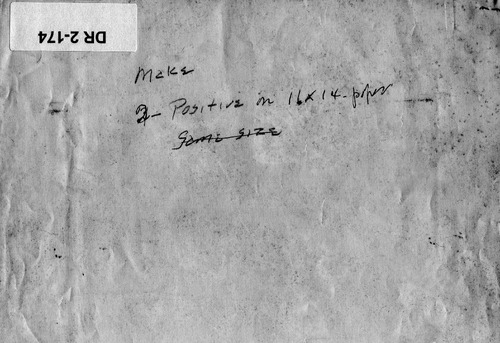 DR 2-174
Make
2- Positive on 16x14-paper
Same size